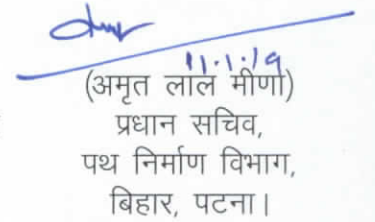 11.1.19
(अमृत लाल मीणा)
प्रधान सचिव,
पथ निर्माण विभाग,
बिहार, पटना।